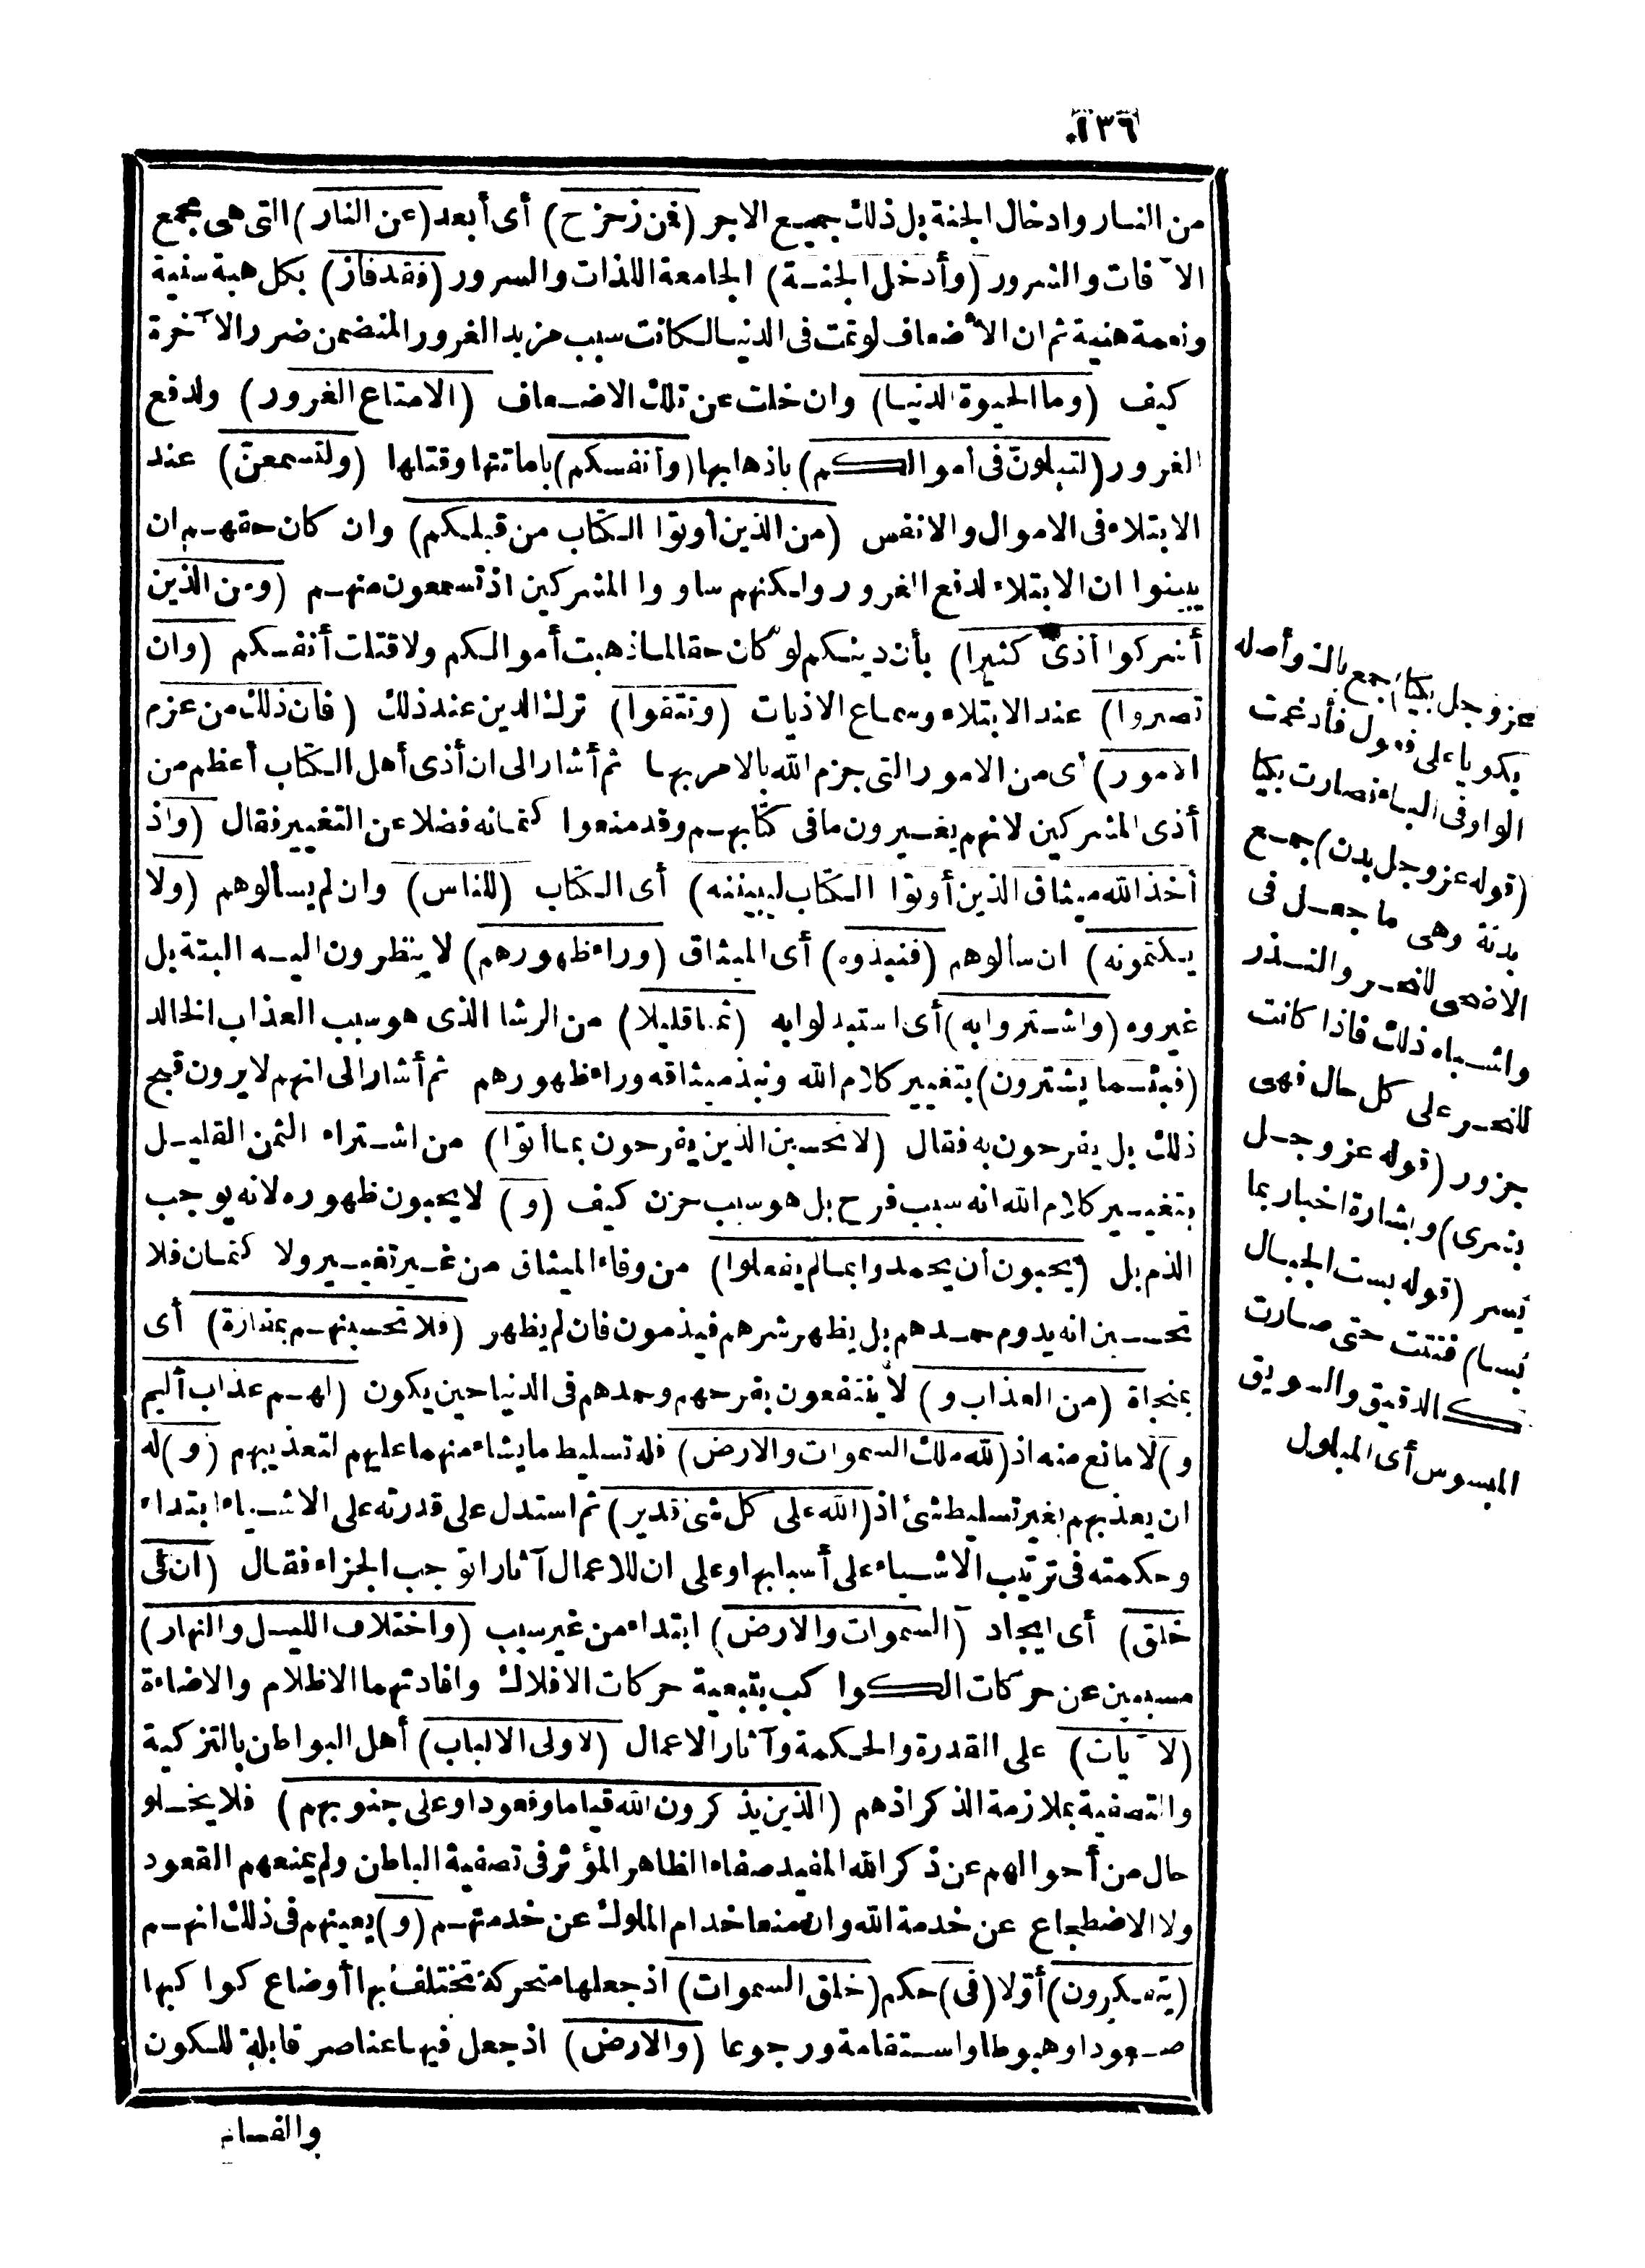 ١٣٦
من النار وادخال الجنة بل ذلك جميع الاجر (فمن زحزح) أى أبعد (عن النار) التى هى مجمع
الآفات والشرور (وأدخل الجنة) الجامعة اللذات والسرور (فقد فاز) بكل هبة سنية
ونعمة هنية ثم ان الاضعاف لو تمت فى الدنيا لكانت سبب مزيد الغرور المتضمن ضرر الآخرة
كيف (وما الحيوة الدنيا) وان خلت عن تلك الاضعاف (الامتاع الغرور) ولدفع
الغرور (لتبلون فى أموالكم) باذهابها (وأنفسكم) باماتتها وقتلها (ولتسمعن) عند
الابتلاء فى الاموال والانفس (من الذين أوتوا الكتاب من قبلكم) وان كان حقهم ان
يبينوا ان الابتلاء لدفع الغرور ولكنهم ساووا المشركين اذ تسمعون منهم (ومن الذين
أشركوا أذى كثيرا) بأن دينكم لو كان حقا لما ذهبت أموالكم ولا قتلت أنفسكم (وان
تصبروا) عند الابتلاء وسماع الاذيات (وتتقوا) ترك الدين عند ذلك (فان ذلك من عزم
الامور) أى من الامور التى جزم الله بالامر بها ثم أشار الى ان أذى أهل الكتاب أعظم من
أذى المشركين لانهم يغيرون ما فى كتابهم وقد منعوا كتمانه فضلا عن التغيير فقال (واذ
أخذ الله ميثاق الذين أوتوا الكتاب ليبيننه) أى الكتاب (للناس) وان لم يسألوهم (ولا
يكتمونه) ان سألوهم (فنبذوه) أى الميثاق (وراء ظهورهم) لا ينظرون اليه البتة بل
غيروه (واشتروا به) أى استبدلوا به (ثمنا قليلا) من الرشا الذى هو سبب العذاب الخالد
(فبئسما يشترون) بتغيير كلام الله ونبذ ميثاقه وراء ظهورهم ثم أشار الى انهم لا يرون قبح
ذلك بل يفرحون به فقال (لا تحسبن الذين يفرحون بما أتوا) من اشتراء الثمن القليل
بتغيير كلام الله انه سبب فرح بل هو سبب حزن كيف (و) لا يحبون ظهوره لانه يوجب
الذم بل (يحبون أن يحمدوا بما لم يفعلوا) من وفاء الميثاق من غير تغيير ولا كتمان فلا
تحسبن انه يدوم حمدهم بل يظهر شرهم فيذمون فان لم يظهر (فلا تحسبنهم بمفازة) أى
بمنجاة (من العذاب و) لا ينتفعون بفرحهم وحمدهم فى الدنيا حين يكون (لهم عذاب أليم
و) لا مانع منه اذ (لله ملك السموات والارض) فله تسليط ما يشاء منهما عليهم لتعذيبهم (و) له
ان يعذبهم بغير تسليط شئ اذ (الله على كل شئ قدير) ثم استدل على قدرته على الاشياء ابتداء
وحكمته فى ترتيب الاشياء على أسبابها وعلى ان للاعمال آثارا توجب الجزاء فقال (ان فى
خلق) أى ايجاد (السموات والارض) ابتداء من غير سبب (واختلاف الليل والنهار)
مسببين عن حركات الكواكب بتبعية حركات الافلاك وافادتهما الاظلام والاضاءة
(لآيات) على القدرة والحكمة وآثار الاعمال (لاولى الالباب) أهل البواطن بالتزكية
والتصفية بملازمة الذكر اذ هم (الذين يذكرون الله قياما وقعودا وعلى جنوبهم) فلا يخلو
حال من أحوالهم عن ذكر الله المفيد صفاء الظاهر المؤثر فى تصفية الباطن ولم يمنعهم القعود
ولا الاضطجاع عن خدمة الله وان منعا خدام الملوك عن خدمتهم (و) يعينهم فى ذلك انهم
(يتفكرون) أولا (فى) حكم (خلق السموات) اذ جعلها متحركة تختلف بها أوضاع كواكبها
صعودا وهبوطا واستقامة ورجوعا (والارض) اذ جعل فيها عناصر قابلة للكون
والفساد
عز وجل بكيا) جمع باك وأصله
بكويا على فعول فأدغمت
الواو فى الياء فصارت بكيا
(قوله عز وجل بدن) جمع
بدنة وهى ما جعل فى
الاضحى للنحر والنذر
واشباه ذلك فاذا كانت
للنحر على كل حال فهى
جزور (قوله عز وجل
بشرى) وبشارة اخبار بما
يسر (قوله بست الجبال
بسا) فتتت حتى صارت
كالدقيق والسويق
المبسوس أى المبلول